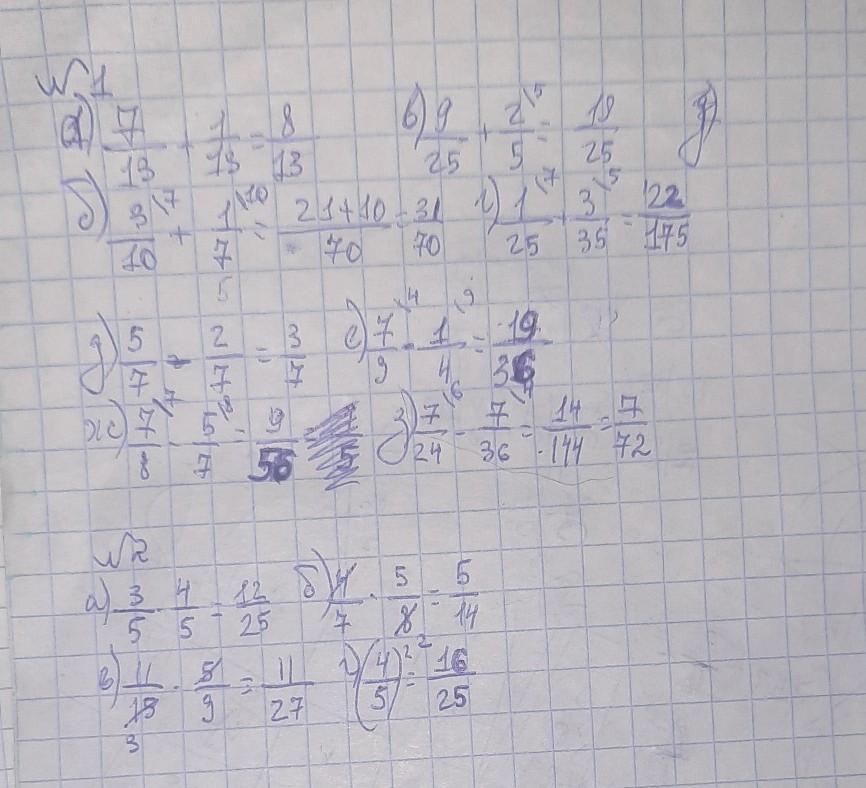 №1
а) 7/13 + 1/13 = 8/13 в) 9/25 + 2/5 \5 = 19/25 д)
б) 3/10 \7 + 1/7 \10 = 21+10/70 = 31/70 г) 1/25 \7 + 3/35 \5 = 22/175
5
д) 5/7 - 2/7 = 3/7 е) 7/9 \4 - 1/4 \9 = 19/36
ж) 7/8 \7 - 5/7 \8 = 9/56 = з) 7/24 \6 - 7/36 \4 = 14/144 = 7/72
№2
а) 3/5 · 4/5 = 12/25 б) 4/7 · 5/8 = 5/14
в) 11/15 · 5/9 = 11/27 г) (4/5)² ² = 16/25
3